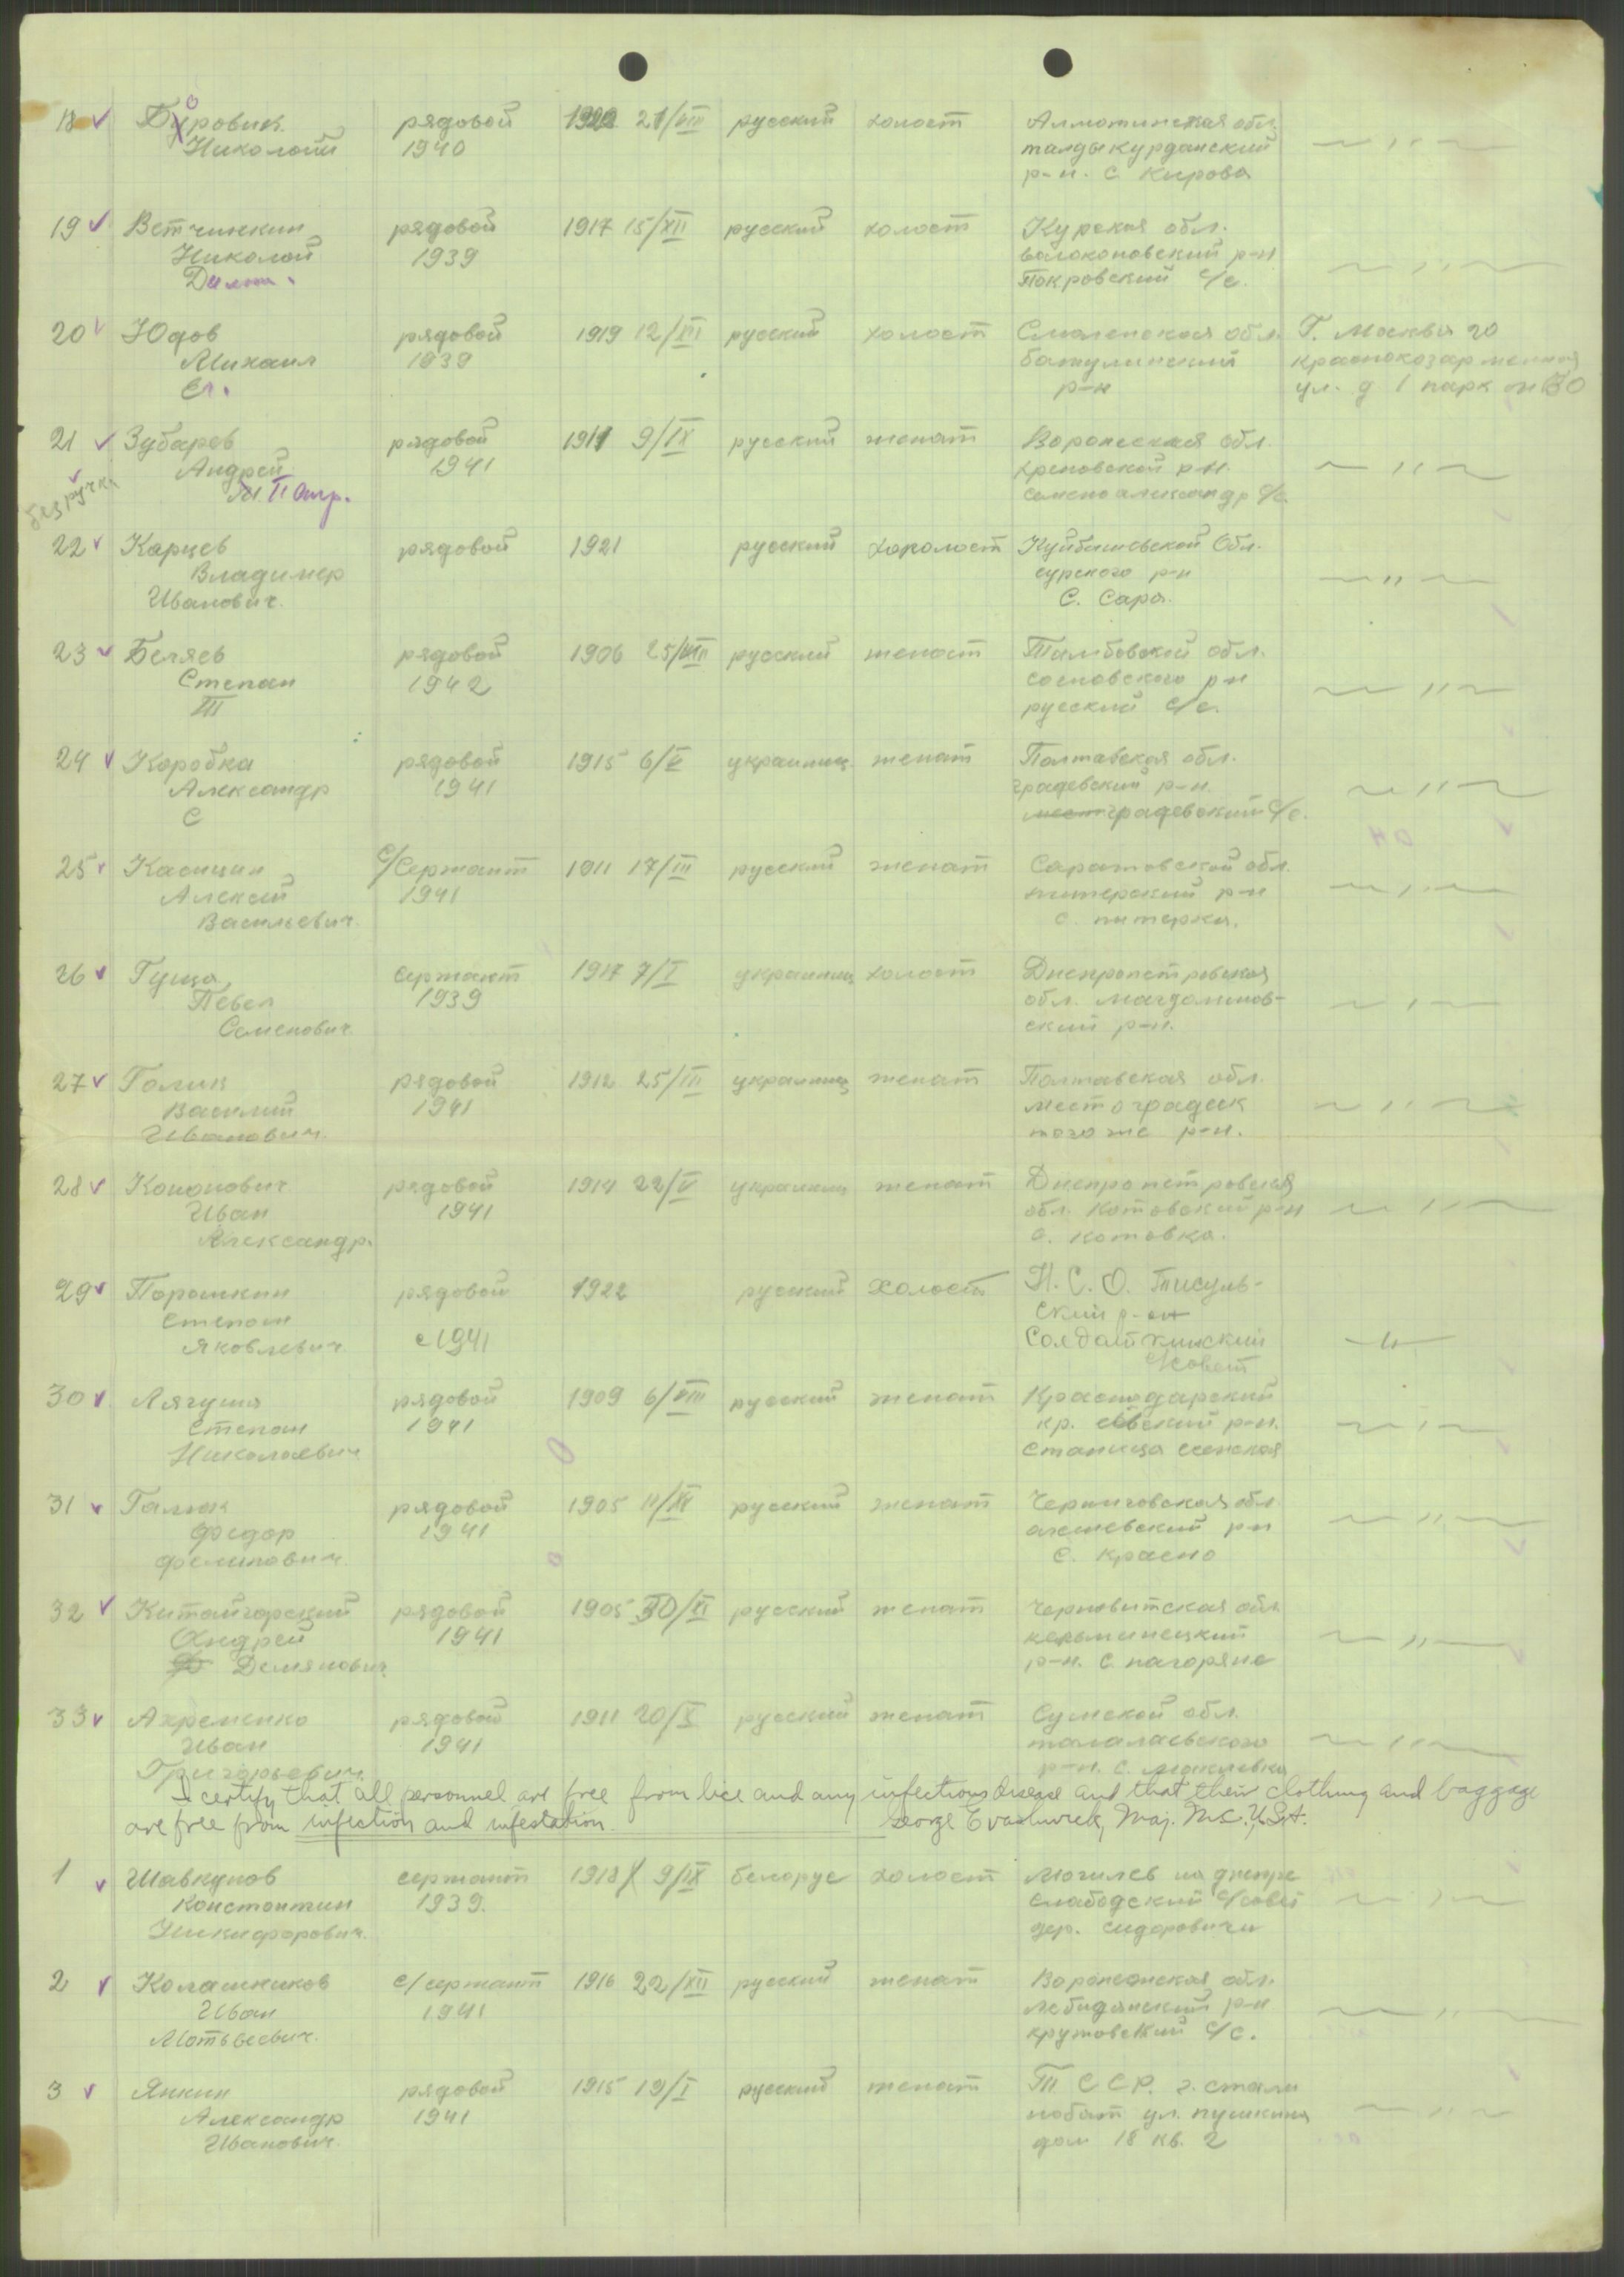 18 Боровик рядовой 1922 21/VIII русский холост Алматинская обл.
Николай 1940 талдыкурданский — ,, —
р-н. с Кирова
19 Ветчинкин рядовой 1917 15/XII русский холост Курская обл.
Николай 1939 волоконовский р-н
Дим. Покровский с/с. — ,, —
20 Юдов рядовой 1919 12/XII русский холост Смоленская обл. Г. Москва 20
Михаил 1939 батулинский
Ег. р-н ул. д 1 парк
21 Зубарев рядовой 1911 9/IX русский женат обл.
Андрей 1941 хреновской р-н. — ,, —
без ручки П Дмр. александр с/с
22 Карцев рядовой 1921 русский Куйбашевской Обл.
Владимер сурского р-н — ,, —
Иванович. С. Сара.
23 Беляев рядовой 1906 25/VIII русский женат Тамбовской обл.
Степан 1942 сосновского р-н — ,, —
III русский с/с.
24 Коробка рядовой 1915 6/V украинц. женат Полтавская обл.
Александр 1941 градевский р-н. — ,, —
С градевский с/с.
25 Касицин с/Сержант 1911 17/III русский женат Саратовской обл.
Алексей 1941 питерский р-н — ,, —
Васильевич. с. питерка.
26 Гуща, сержант 1917 7/I украинец холост Днепропетровская
Певел 1939 обл. магдалинов- — , —
Семенович. ский р-н.
27 Голик рядовой 1912 25/III украинц женат Полтавская обл.
Василий 1941 местоградск — ,, —
Иванович. тогоже р-н.
28 Кононович рядовой 1914 22/V украинец женат Днепропетровская
Иван 1941 обл. Котовский р-н — ,, —
Александр. с. котовка.
29 Порошкин рядовой 1922 русский холост Н. С. О. Тисуль-
Степан ский р-он
Яковлевич с 1941 Солдаткинский — ,, —
с/совет
30 Лягуша рядовой 1909 6/VIII русский женат Краснодарский
Степан 1941 кр. р-н. — , —
Николаевич станица
31 Галюк рядовой 1905 11/IX русский женат Черниговская обл
Федор 1941 р-н — ,, —
с. красно
32 Китайгорский рядовой 1905 30/XI русский женат Черновитская обл
Андрей 1941 кельминецкий — ,, —
Демянович р-н. с. нагоряно
33 Ахременко рядовой 1911 20/X русский женат Сумской обл.
Иван 1941 талалаевского — ,, —
Григорьевич. р-н. с.
I certify that all personnel are free from lice and any infectious disease and that their clothing and baggage
are free from infection and infestation. George Maj. M.C. U.S.A.
1 Шавкунов сержант 1918 9/IX белорус холост Могилев на днепре
Константин 1939. слабодский с/совет — , —
Никифорович. дер. сидоровичи
2 Колашников с/сержант 1916 22/XII русский женат Воронежская обл.
Иван 1941 лебидянский р-н — ,, —
Мотьвеевич. крутовский с/с.
3 Янкин рядовой 1915 19/I русский женат Т С С Р. г. стали
Александр 1941 нобат ул. пушкина — ,, —
Иванович. дом 18 кв. 2